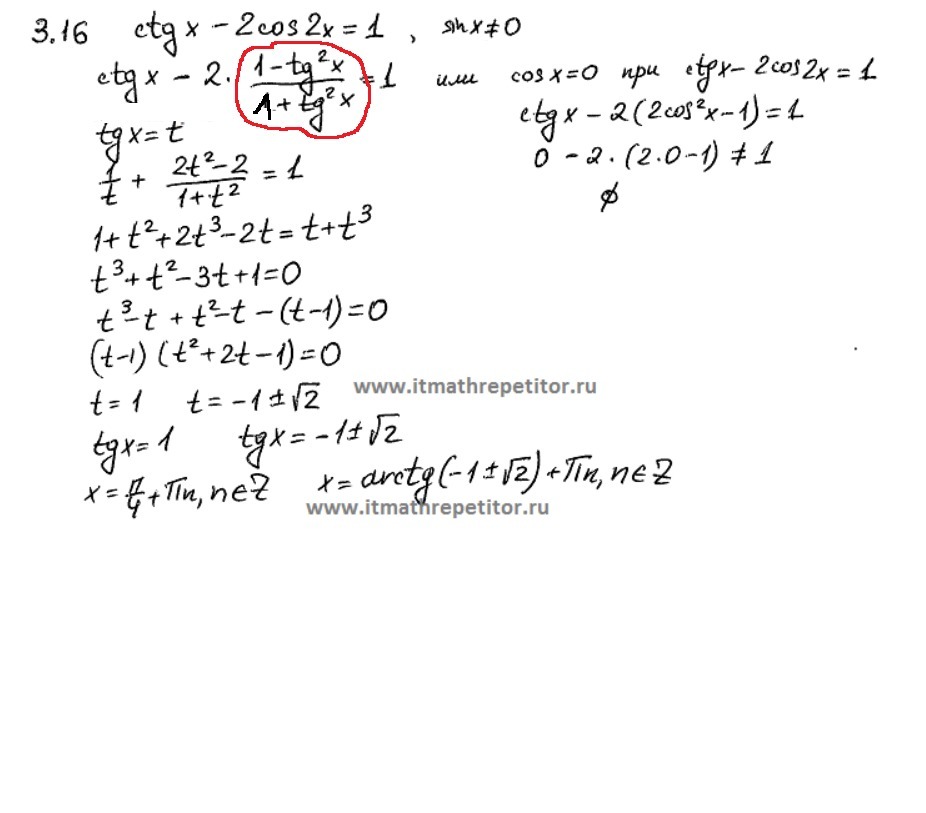 3.16 ctg x − 2cos2x = 1 , sin x ≠ 0
ctg x − 2 · (1 − tg²x)/(1 + tg²x) = 1 или cos x = 0 при ctg x − 2cos2x = 1
ctg x − 2(2cos²x − 1) = 1
tg x = t
0 − 2 · (2 · 0 − 1) ≠ 1
1/t + (2t² − 2)/(1 + t²) = 1
∅
1 + t² + 2t³ − 2t = t + t³
t³ + t² − 3t + 1 = 0
t³ − t + t² − t − (t − 1) = 0
(t − 1)(t² + 2t − 1) = 0
www.itmathrepetitor.ru
t = 1 t = −1 ± √2
tg x = 1 tg x = −1 ± √2
x = π/4 + πn, n ∈ Z x = arctg(−1 ± √2) + πn, n ∈ Z
www.itmathrepetitor.ru